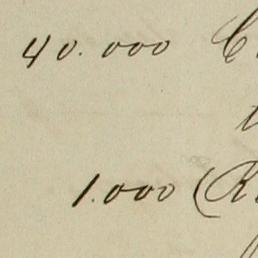 40.000
1.000 (R